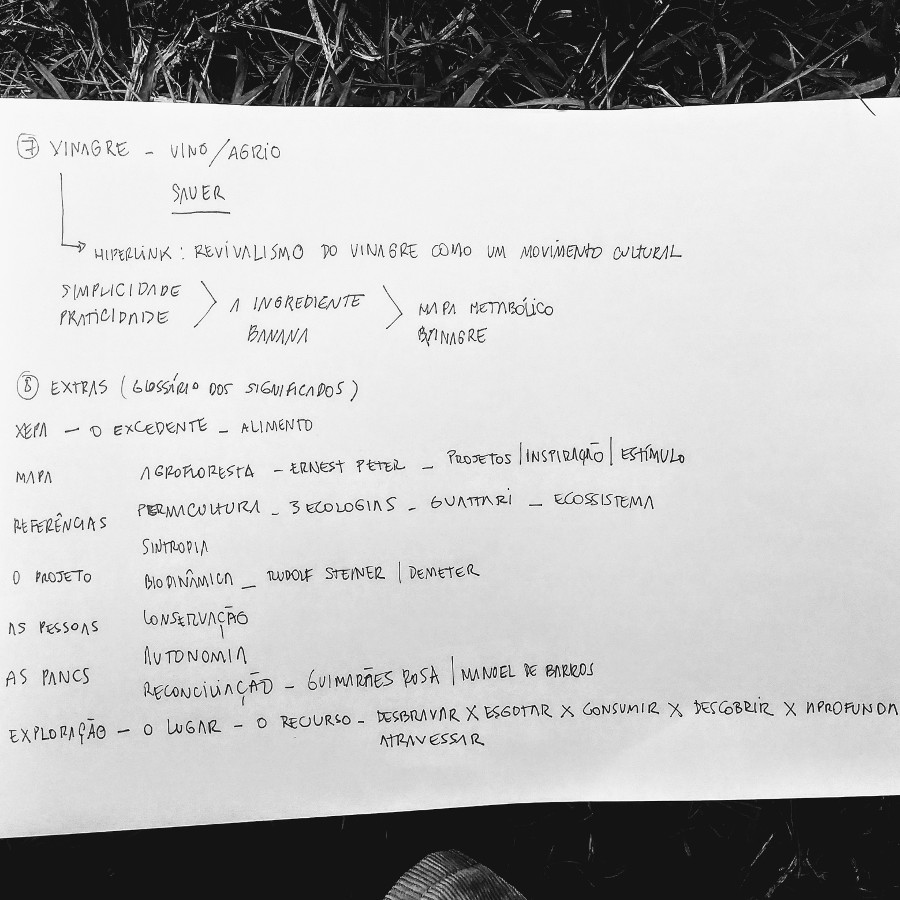 7 VINAGRE - VINO/AGRIO
SAUER
HIPERLINK : REVIVALISMO DO VINAGRE COMO UM MOVIMENTO CULTURAL
SIMPLICIDADE
PRATICIDADE
1 INGREDIENTE
BANANA
MAPA METABÓLICO
VINAGRE
8 EXTRAS (GLOSSÁRIO DOS SIGNIFICADOS)
XEPA - O EXCEDENTE - ALIMENTO
MAPA AGROFLORESTA - ERNEST PETER - PROJETOS | INSPIRAÇÃO | ESTÍMULO
REFERÊNCIAS PERMACULTURA - 3 ECOLOGIAS - GUATTARI - ECOSSISTEMA
SINTROPIA
O PROJETO BIODINÂMICA - RUDOLF STEINER | DEMETER
AS PESSOAS CONSERVAÇÃO
AUTONOMIA
AS PANCS RECONCILIAÇÃO - GUIMARÃES ROSA | MANOEL DE BARROS
EXPLORAÇÃO - O LUGAR - O RECURSO - DESBRAVAR X ESGOTAR X CONSUMIR X DESCOBRIR X APROFUNDA
ATRAVESSAR